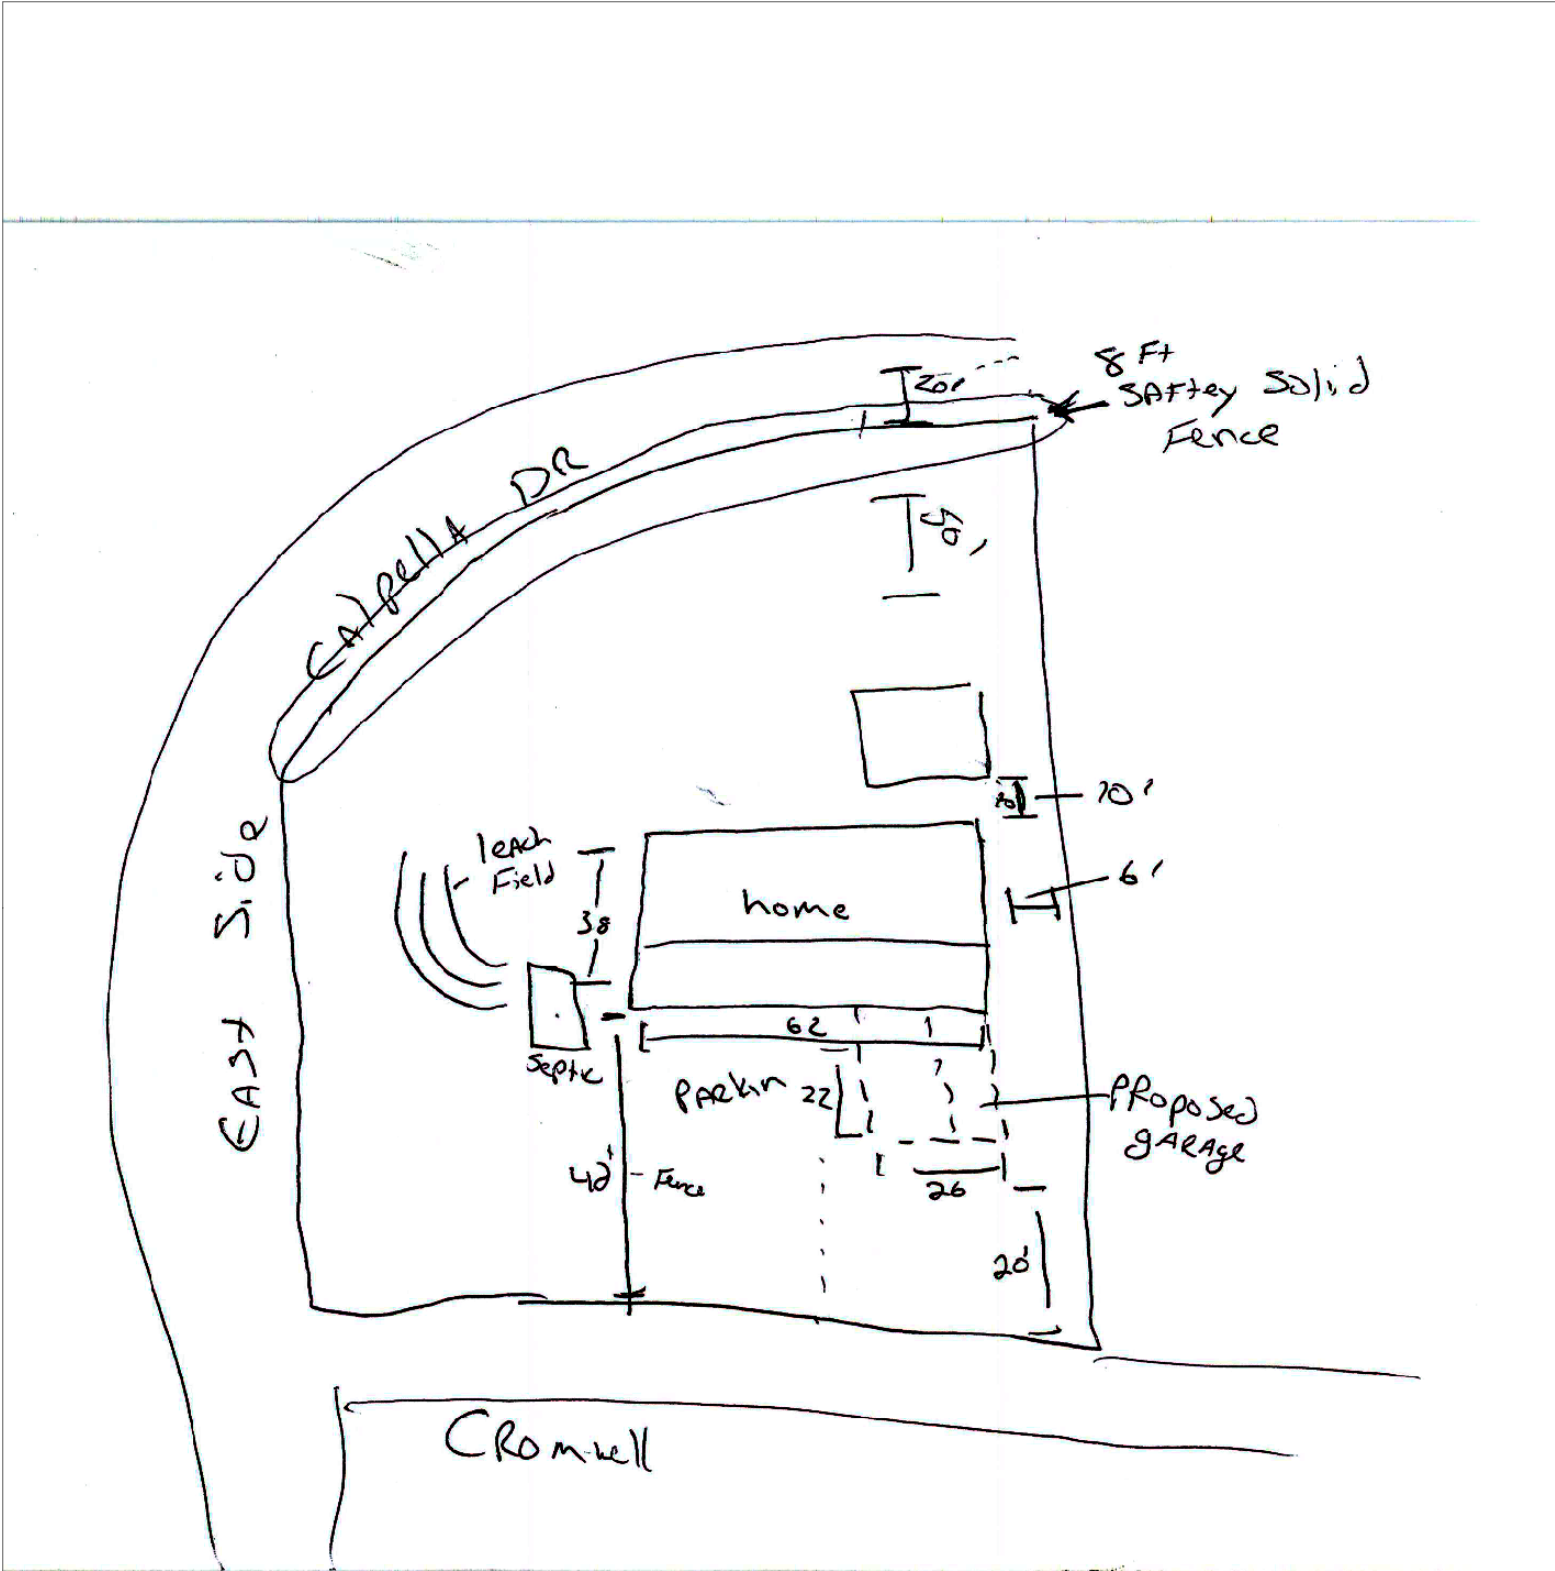 8 Ft
SAFtey Solid
Fence
20'
CAlpellA DR
50'
10'
10'
leach
Field
38
home
6'
EAST SidR
62
Septic
PARkin
22
PRoposed
gARAge
40'
Fence
26
20'
CRomwell